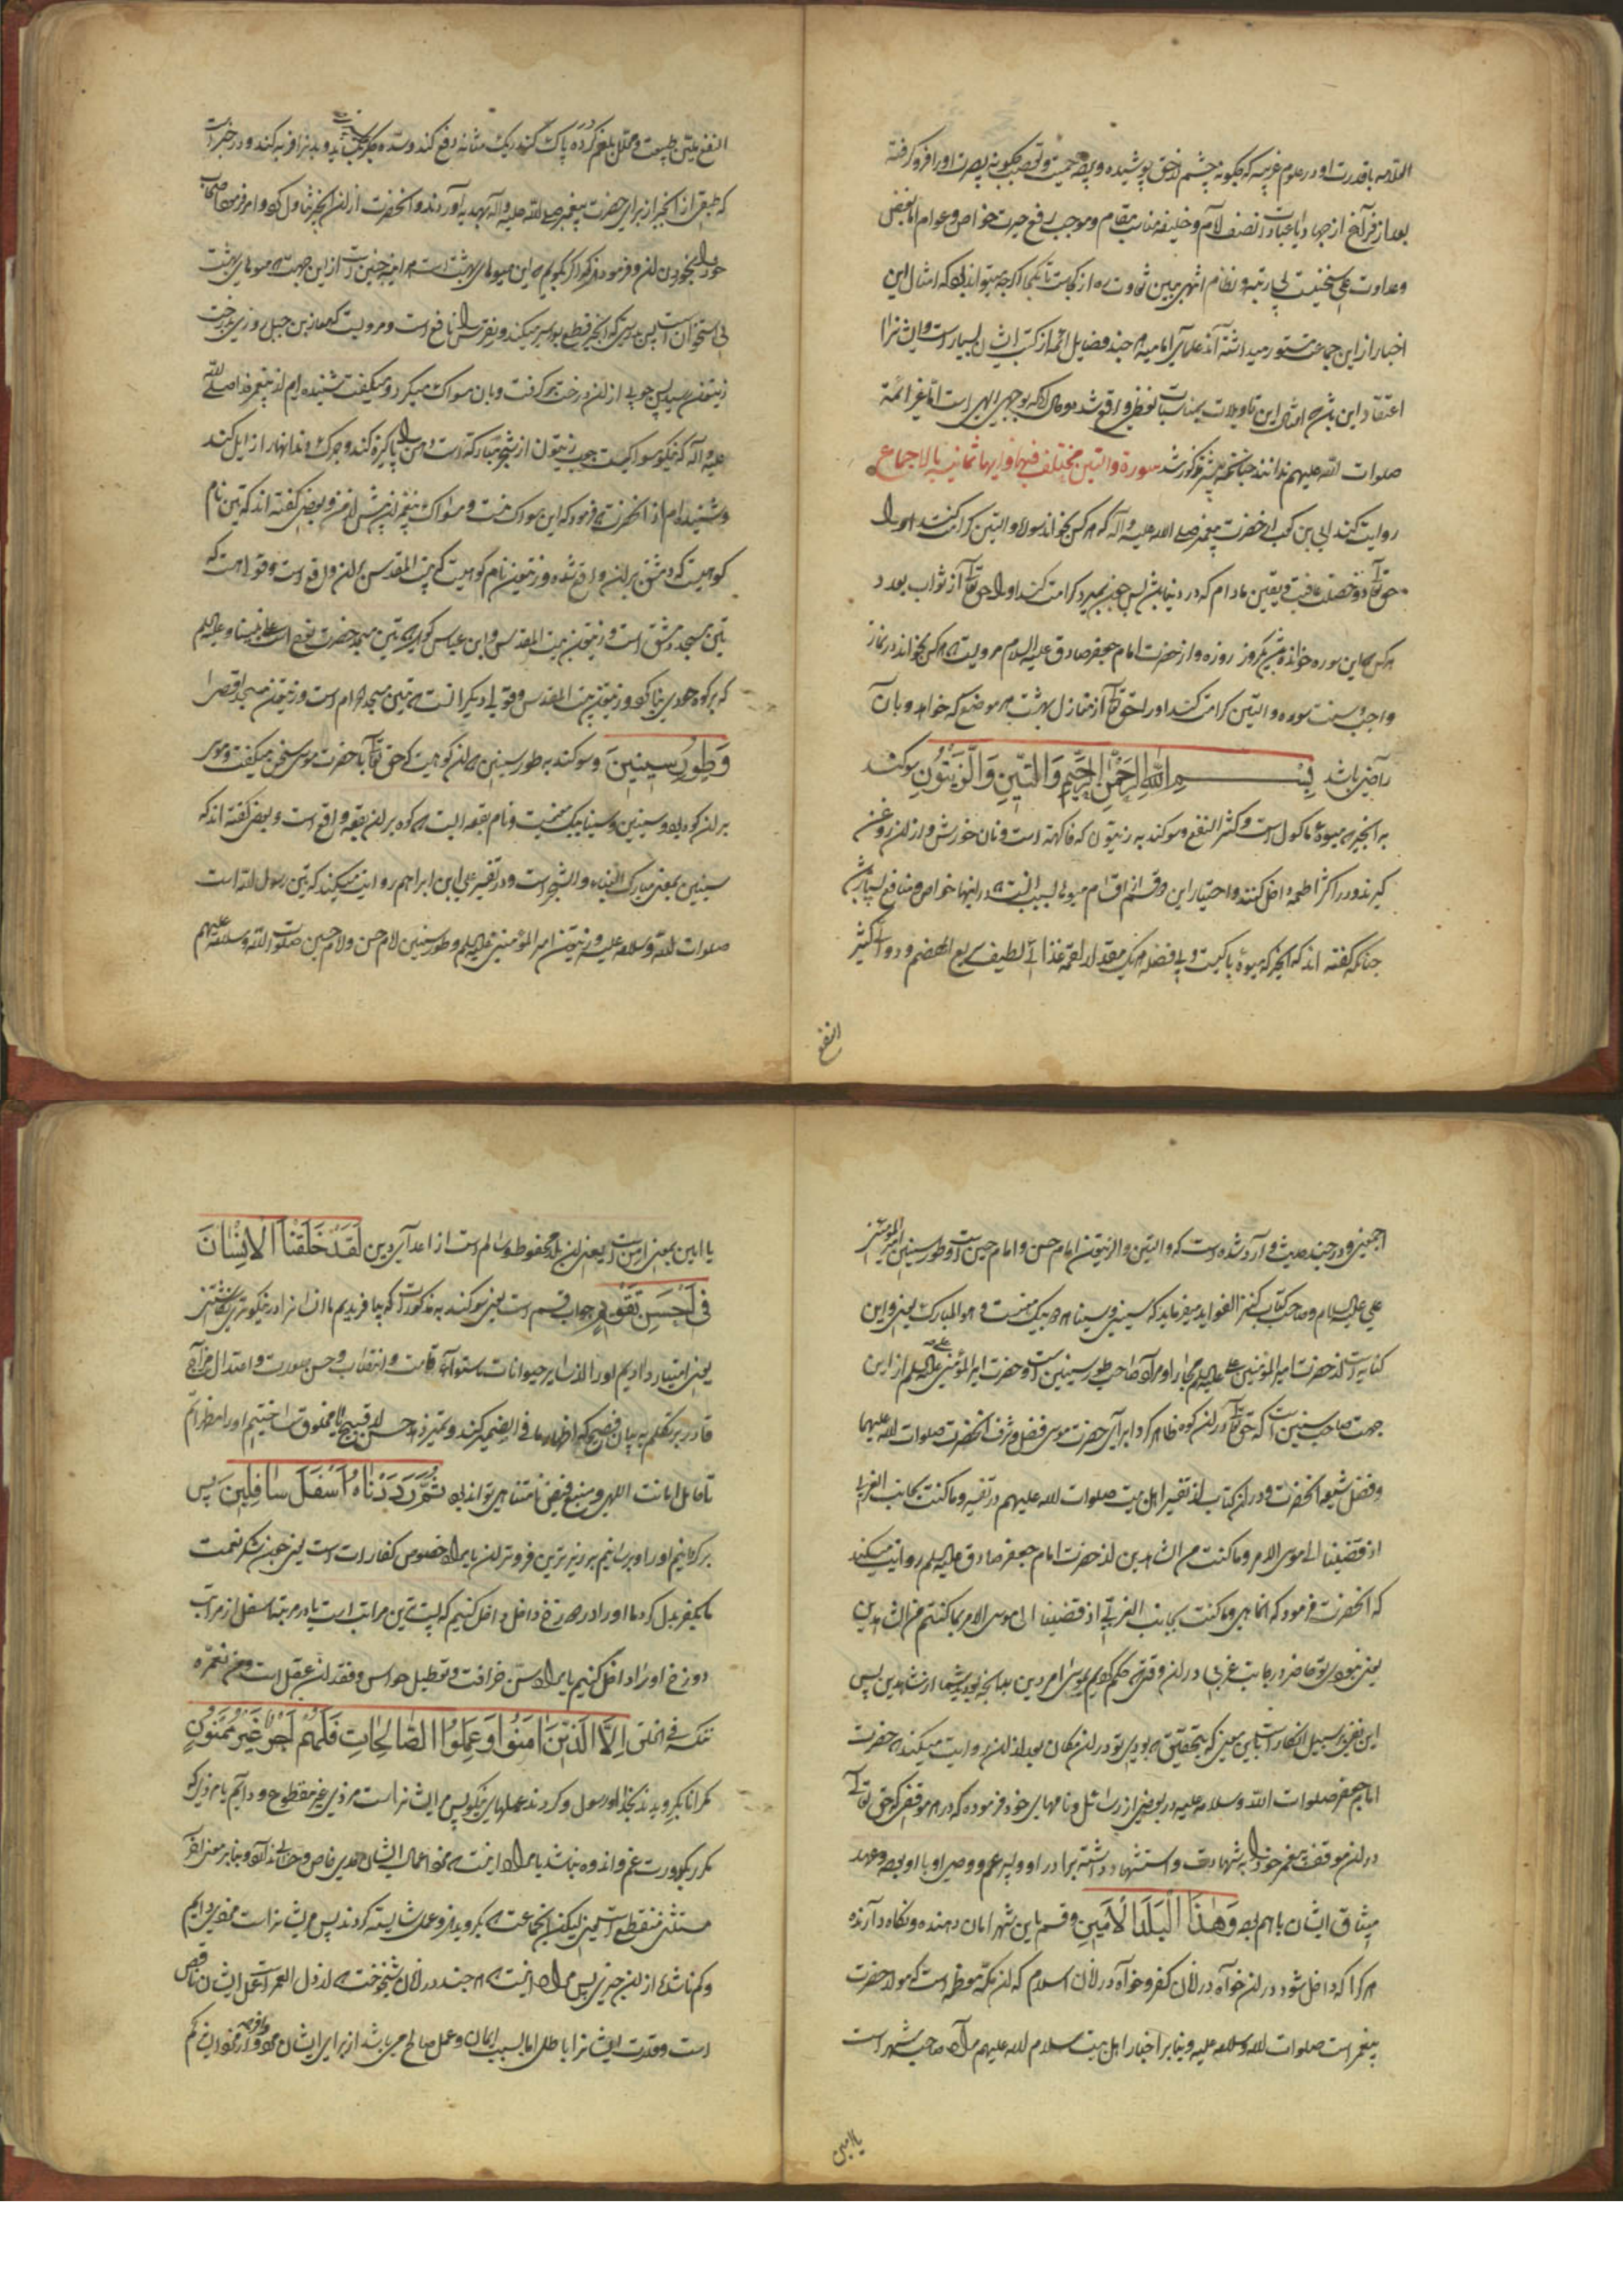 العلامه با قدرت او در علوم غریبه که چگونه چشم از حق پوشیده و پرده حمیت و تعصب چگونه بصیرت او را فرو گرفته
بعد از فراغ از جهاد یا عبادات نصف لام و خلیفه مناسب مقام و موجب رفع حیرت خواص و عوام اما بغض
وعداوت علی سخنیست بی رتبه و نظام انتهی ببین تفاوت ره از کجاست تا بکجا اگر چه میتواند بود که امثال این
اخبار از این جماعت مستور میداشته اند علمای امامیه هر چند فضایل ائمه از کتب ایشان بسیار است و ایشانرا
اعتقاد این بشرح امثال این تاویلات بمناسبات لفظی واقع شد و حال آنکه بوحی الهی است اما غیر ائمه
صلوات الله علیهم ندانند چنانچه پیشتر مذکور شد سورة والتین مختلف فیها و ایها ثمانیه بالاجماع
روایت کند ابی بن کعب از حضرت پیغمبر صلی الله علیه وآله که هر کس بخواند سوره والتین کرامت کند او را
حق تعالی دو خصلت عافیت و یقین مادام که در دنیا باشد پس چون بمیرد کرامت کند او را حق تعالی از ثواب بعدد
هر کس که این سوره خوانده باشد یکروز روزه و از حضرت امام جعفر صادق علیه السلام مرویست که هر کس بخواند در نماز
واجب و سنت سوره والتین کرامت کند او را حق تعالی از منازل بهشت هر موضع که خواهد و بآن
راضی باشد بِسْمِ اللهِ الرَّحْمٰنِ الرَّحِيمِ وَالتِّينِ وَالزَّيْتُونِ سوکند
به انجیر که میوۀ ماکول است و کثیر النفع و سوکند به زیتون که فاکهه است و نان خورش و از ان روغن
کیرند و در اکثر اطعمه داخل کنند و اختیار این دو قسم از اقسام میوه بسبب آنست که در اینها خواص و منافع بسیار است
چنانکه کفته اند که انجیر که میوۀ پاکیست و بی فضله هر یک مقدار لقمه غذائی لطیف سریع الهضم و دوائی کثیر
النفع
النفع ملین طبیعت و محلل بلغم گرده پاک کند ریک مثانه دفع کند و سده جگر بگشاید و بدنرا فربه کند و در خبر است
که طبقی از انجیر از برای حضرت پیغمبر صلی الله علیه وآله بهدیه آوردند و آنحضرت از ان انجیر تناول کرد و امر فرمود اصحاب
خود را بخوردن ان و فرمود هرگز اگر بگویم که این میوهای بهشت است هر آینه چنین است از این جهت که میوهای بهشت
بی استخوان است پس بدرستی که انجیر قطع بواسیر میکند و نقرس را نافع است و مرویست که معاذ بن جبل روزی بدرخت
زیتون رسید پس چوبی از ان درخت برگرفت و بان مسواک میکرد و میگفت شنیده ام از پیغمبر خدا صلی الله
علیه وآله که نیکو مسواکیست چوب زیتون از شجره مبارکه است دهن را پاکیزه کند و چرک دندانها را زایل کند
و شنیده ام از آنحضرت که فرمود که این مسواک منست و مسواک پیغمبران پیش از من و بعضی کفته اند که تین نام
کوهیست که دمشق بر ان واقع شده و زیتون نام کوهیست که بیت المقدس بر ان واقع است و قولی هست که
تین مسجد دمشق است و زیتون بیت المقدس و ابن عباس کوید که تین مسجد حضرت نوح است علی نبینا و علیه السلم
که بر کوه جودی بنا کرد و زیتون بیت المقدس و قولی دیگر آنست که تین مسجد حرام است و زیتون مسجد اقصی
وَطُورِ سِينِينَ و سوکند به طور سینین که ان کوهیست که حق تعالی با حضرت موسی سخن میگفت و موسی
بر ان کوه بود و سینین و سینا بیک معنیست و نام بقعه ایست که کوه بر ان بقعه واقع است و بعضی کفته اند که
سینین بمعنی مبارک البناء و الشجر است و در تفسیر علی ابن ابراهیم روایت میکند که تین رسول الله است
صلوات الله وسلامه علیه و زیتون امیر المؤمنین علیه السلم و طور سینین امام حسن و امام حسین صلوات الله وسلامه علیهم
اجمعین و در چند حدیث وارد شده است که والتین والزیتون امام حسن و امام حسین است و طور سینین امیر المؤمنین
علی علیه السلام و صاحب کتاب کنز الفواید میفرماید که سینین و سینا هر دو بیک معنیست و هو المبارک یعنی و این
کنایه است از حضرت امیر المؤمنین علی علیه السلم مجازا و مراد صاحب طور سینین است و حضرت امیر المؤمنین علیه السلم از این
جهت صاحب سینین است که حق تعالی در ان کوه ظاهر کرد برای حضرت موسی فضل و شرف آنحضرت صلوات الله علیهما
و فضل شیعه آنحضرت و در ان کتاب از تفسیر اهل بیت صلوات الله علیهم در تفسیر وما کنت بجانب الغربی
اذ قضینا الی موسی الامر وما کنت من الشاهدین از حضرت امام جعفر صادق علیه السلم روایت میکند
که آنحضرت فرمود که انما هی وما کنت بجانب الغربی اذ قضینا الی موسی الامر بما کنتم من الشاهدین
یعنی نبودی تو حاضر در جانب غربی در ان وقتی که حکم کردیم بموسی امر دین بدانچه بودید شما از شاهدین پس
این نفی بر سبیل انکار است باین معنی که بتحقیق که بودی تو در ان مکان بعد از ان روایت میکند که حضرت
امام جعفر صلوات الله وسلامه علیه در بعضی از رسائل و نامهای خود فرموده که در هر موقفی که حق تعالی
در ان موقف پیغمبر خود را بشهادت و استشهاد داشته برادر او و پسر عم و وصی او با او بوده و عهد
میثاق ایشان با هم بوده وَهٰذَا الْبَلَدِ الْأَمِينِ و قسم باین شهر امان دهنده و نکاه دارنده
هر کرا که داخل شود در ان خواه در زمان کفر و خواه در زمان اسلام که ان مکه معظمه است که مولد حضرت
پیغمبر است صلوات الله وسلامه علیه و بنابر اخبار اهل بیت سلام الله علیهم مراد صاحب شهر است
یا امین
یا امین بمعنی امن است یعنی ان بلد محفوظ و سالم است از اعدای دین لَقَدْ خَلَقْنَا الْإِنْسَانَ
فِي أَحْسَنِ تَقْوِيمٍ جواب قسم است یعنی سوکند به مذکورات که بیافریدیم ما انسانرا در نیکوترین
یعنی امتیاز دادیم او را از سایر حیوانات باستوای قامت و انتصاب و حسن صورت و اعتدال مزاج
قادر بر تکلم به بیان فصیح که اظهار ما فی الضمیر کند و تمیز دهد حسن از قبیح مخلوق ساختیم او را مظهر اتم
تا حامل امانت الهی و منبع فیض نامتناهی تواند بود ثُمَّ رَدَدْنَاهُ أَسْفَلَ سَافِلِينَ پس
برگردانیم او را و برسانیم بر زیر ترین فروتران یا مراد خصوص کفار است یعنی چون شکر نعمت
بکفر بدل کرد ما او را در دوزخ داخل کنیم که پست ترین مراتب است یا در مرتبه اسفل از مراتب
دوزخ او را داخل کنیم یا مراد سن خرافت و تعطیل حواس و فقدان عقل است ومن نعمره
ننکسه فی الخلق إِلَّا الَّذِينَ آمَنُوا وَعَمِلُوا الصَّالِحَاتِ فَلَهُمْ أَجْرٌ غَيْرُ مَمْنُونٍ
مگر آنانکه گرویدند بخدا و رسول و کردند عملهای نیکو پس مر ایشانراست مزدی غیر مقطوع و دایم
مکدر بکدورت غم و اندوه نباشد یا مراد اینست که محو اعمال ایشان و بنابر معنی اخر
مستثنی منقطع است یعنی لیکن آنجماعت که گرویدند و عمل شایسته کردند پس مر ایشانراست مزدی دایم
و کم ناشده از ان چیزی پس مراد اینست که هر چند در زمان شیخوخت که ارذل العمر است عمل ایشان ناقص
است و قدرت ایشانرا باطل اما بسبب ایمان و عمل صالح می باشد از برای ایشان مزد وافر